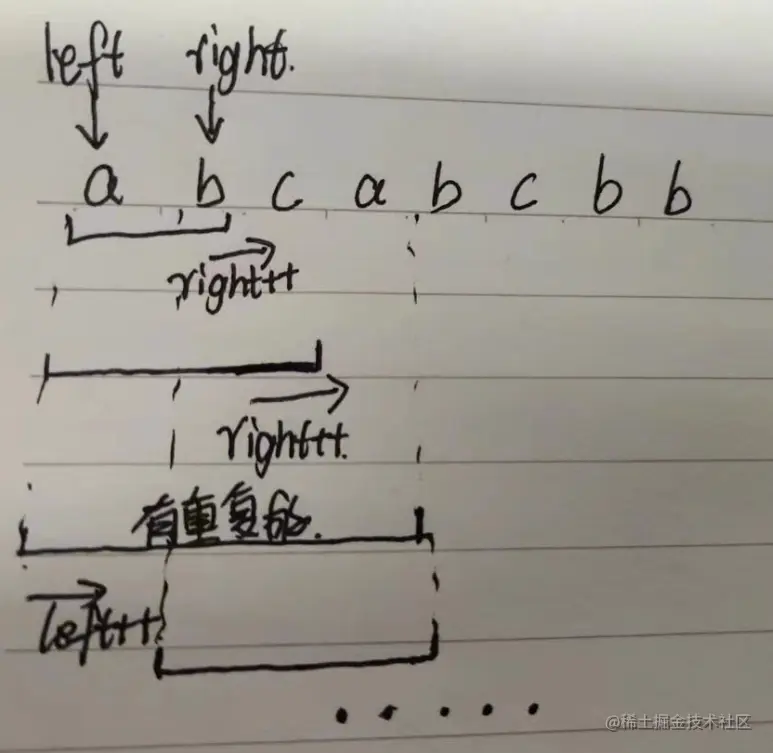 left right.
a b c a b c b b
right++
right++.
有重复的.
left++
.....
@稀土掘金技术社区